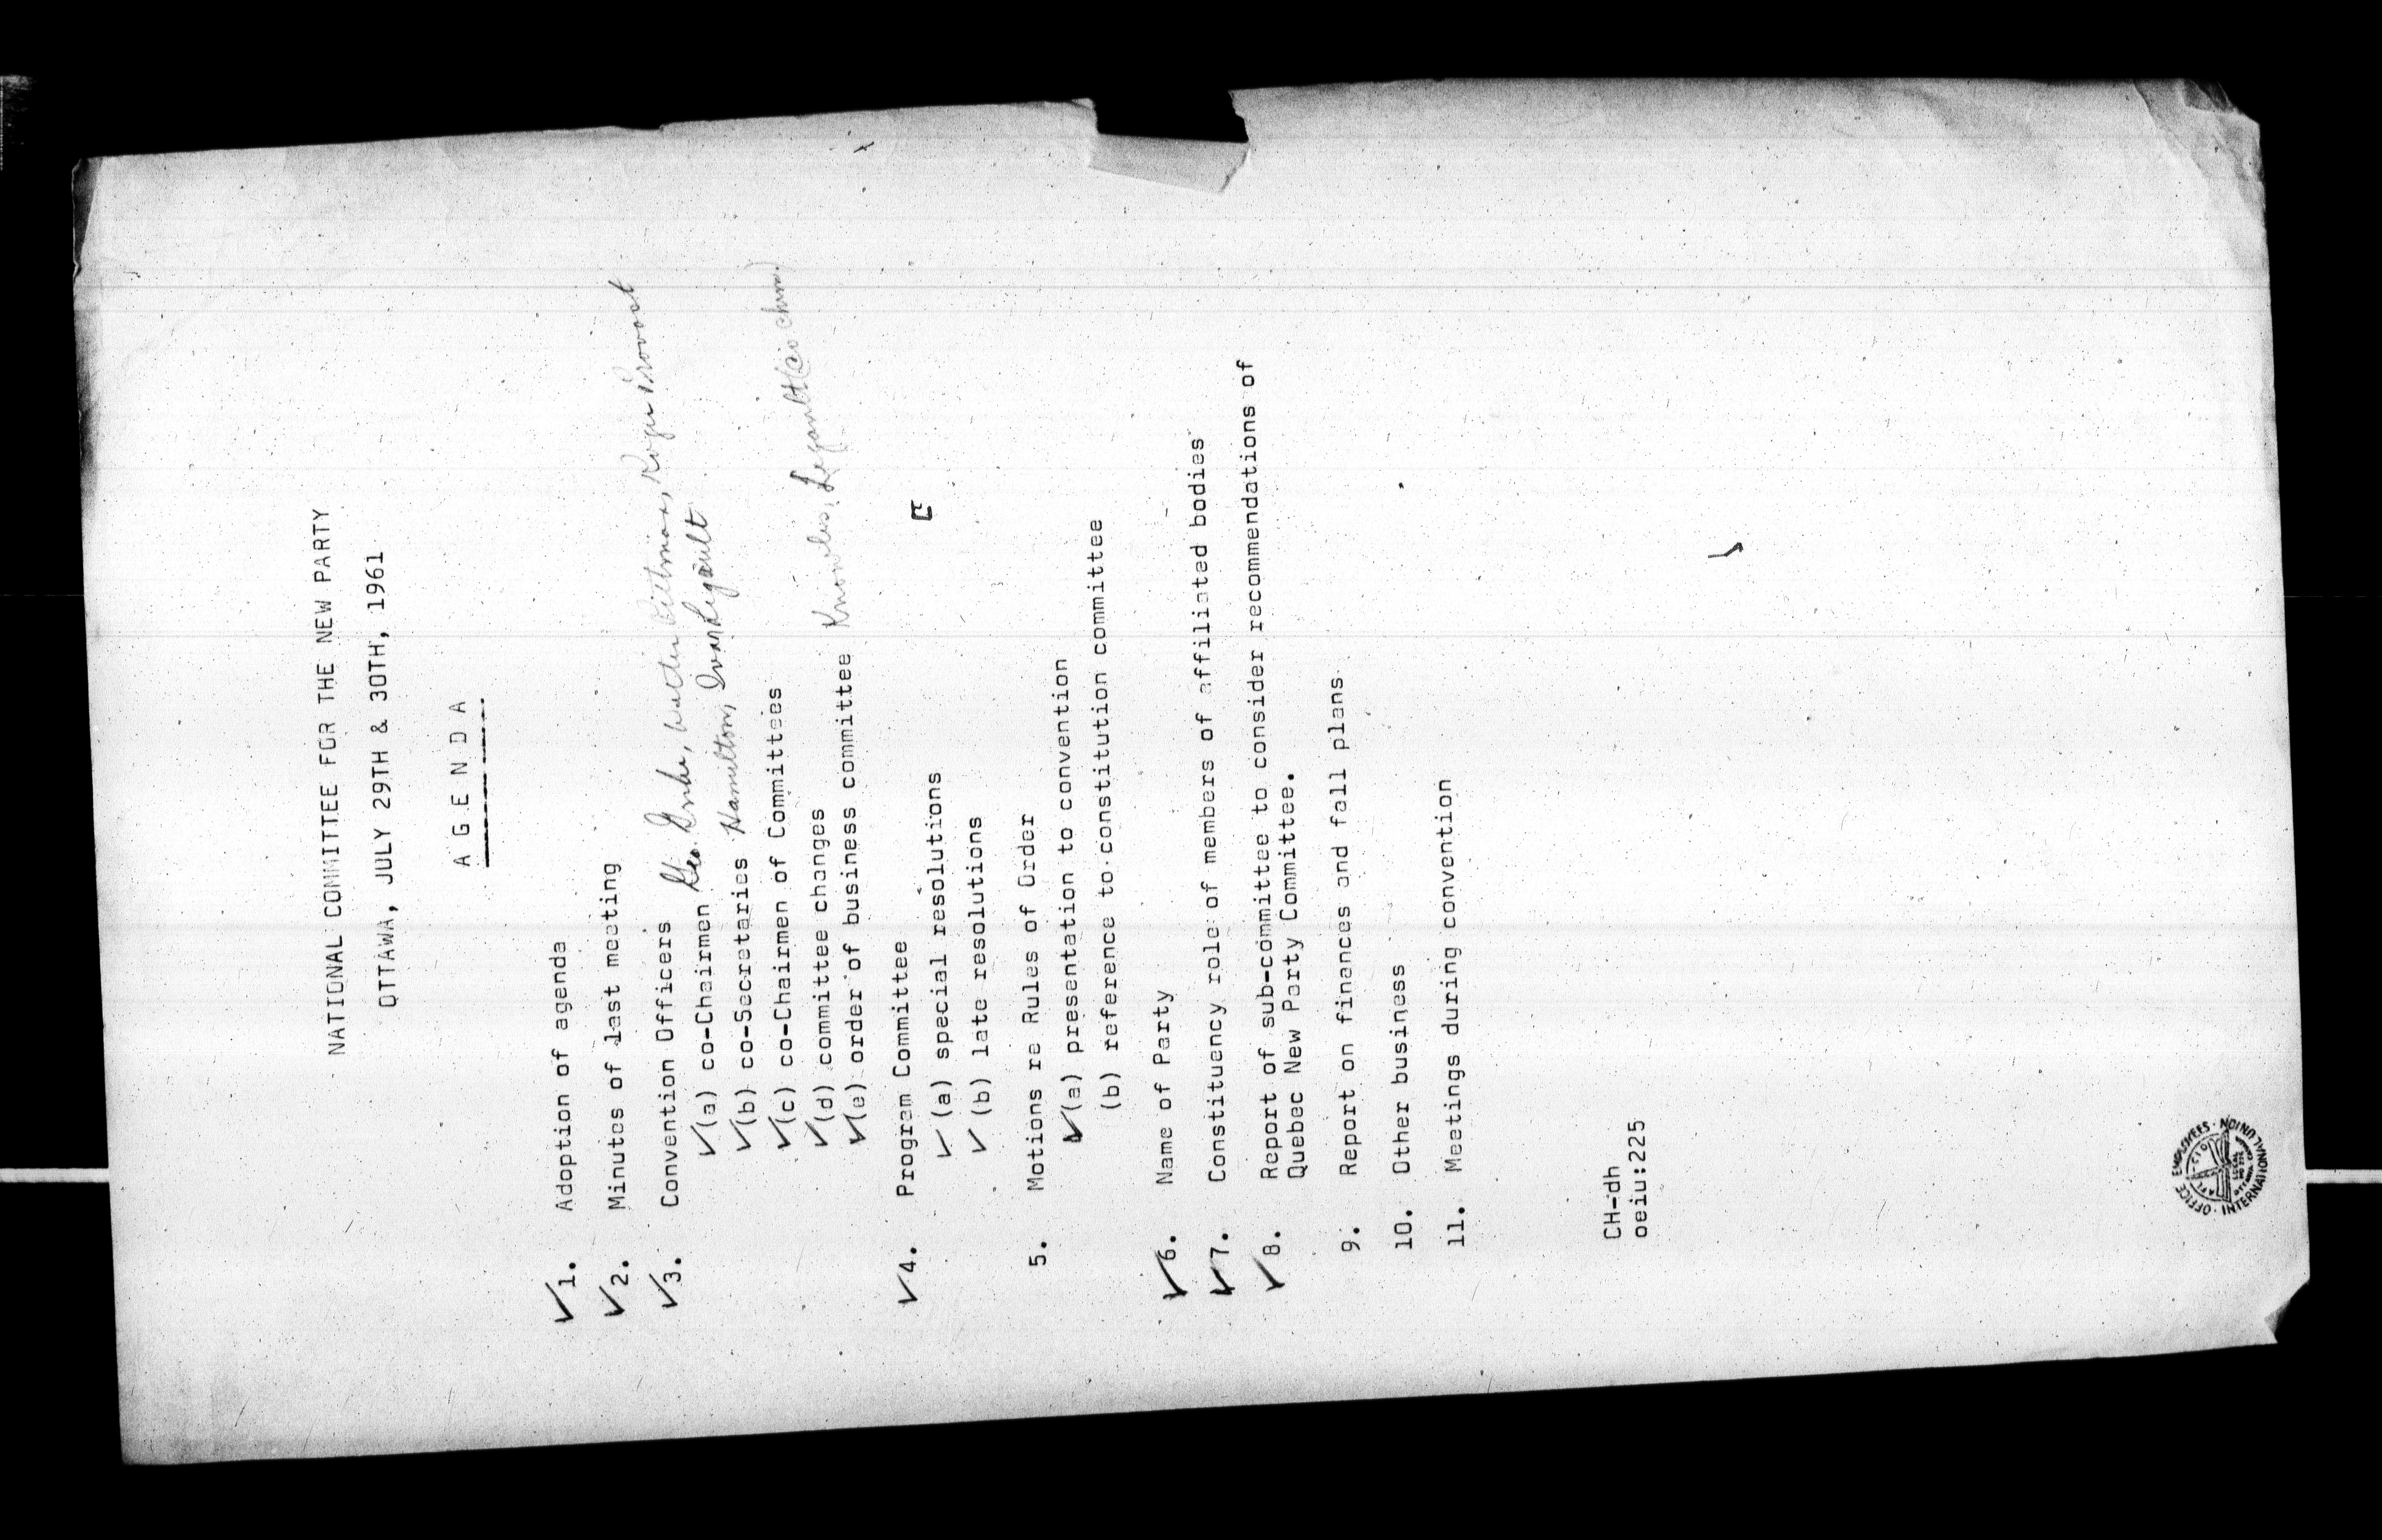 NATIONAL COMMITTEE FOR THE NEW PARTY
OTTAWA, JULY 29TH & 30TH, 1961
A G E N D A
✓1. Adoption of agenda
✓2. Minutes of last meeting
✓3. Convention Officers
✓(a) co-Chairmen Geo. Roger Provost
✓(b) co-Secretaries Hamilton, Ivan Legault
✓(c) co-Chairmen of Committees
✓(d) committee changes
✓(e) order of business committee Knowles, Legault (co chrm.)
✓4. Program Committee
✓(a) special resolutions
✓(b) late resolutions
5. Motions re Rules of Order
✓(a) presentation to convention
(b) reference to constitution committee
✓6. Name of Party
✓7. Constituency role of members of affiliated bodies
✓8. Report of sub-committee to consider recommendations of
Quebec New Party Committee.
9. Report on finances and fall plans
10. Other business
11. Meetings during convention
CH-dh
oeiu:225
OFFICE EMPLOYEES INTERNATIONAL UNION
AFL CIO